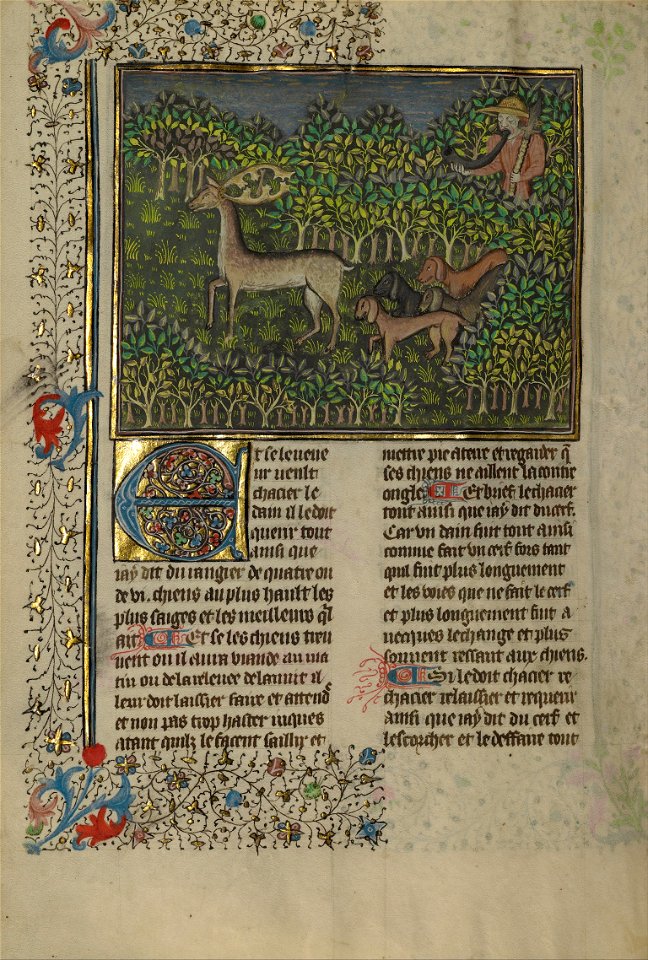 Et se le vene
ur veult
chacier le
dain il le doit
querir tout
ainsi que
iay dit du rangier de quatre ou
de vi. chiens au plus hault les
plus saiges et les meilleurs ql
ait Et se les chiens treu
uent ou il aura viande au ma
tin ou de la releuee de la nuit il
leur doit laissier faire et attendr
et non pas trop haster iuques
atant quilz le facent saillir et
mettre pie a terre et regarder q
ses chiens ne aillent la contre
ongle Et brief le chacier
tout ainsi que iay dit du cerf.
Car vn dain fuit tout ainsi
comme fait vn cerf fors tant
quil fuit plus longuement
et les voies que ne fait le cerf
et plus longuement fuit a
uecques le change et plus
souuent ressant aux chiens.
Si le doit chacier re
chacier relaissier et requerir
ainsi que iay dit du cerf et
lescorcher et le deffaire tout